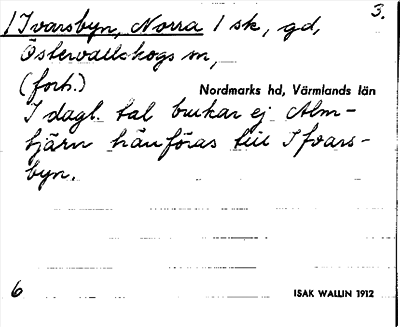 3.
/Ivarsbyn, Norra / sk, gd,
Östervallskogs sn,
(forts.)
Nordmarks hd, Värmlands län
I dagl. tal brukar ej Alm-
tjärn hänföras till Ifvars-
byn.
6
ISAK WALLIN 1912